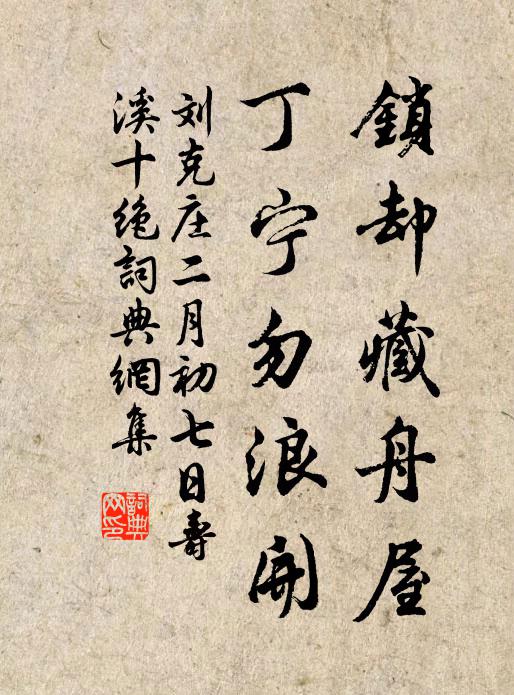 鎖却藏舟屋
丁宁勿浪開
刘克庄二月初七日壽
溪十绝詞典網集
詞典网印